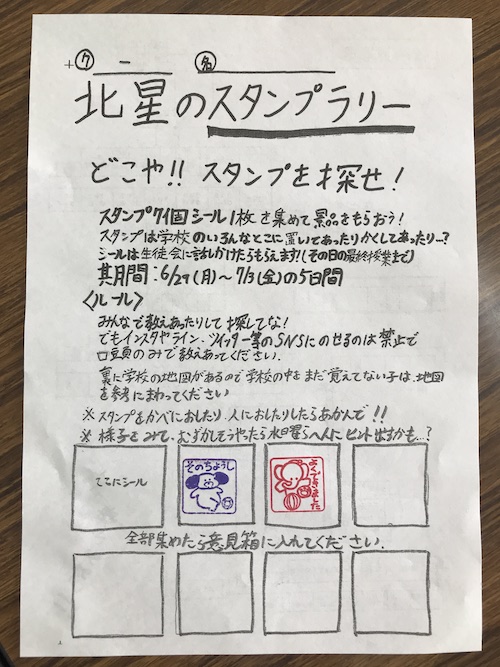 ク － 名
北星のスタンプラリー
どこや!! スタンプを探せ!
スタンプ7個シール1枚を集めて景品をもらおう!
スタンプは学校のいろんなとこに置いてあったりかくしてあったり…?
シールは生徒会に話しかけたらもらえます!(その日の最終授業まで)
期間:6/29(月)～7/3(金)の5日間
<ルール>
みんなで教えあったりして探してな!
でもインスタやライン、ツイッター等のSNSにのせるのは禁止で
口頭のみで教えあってください.
裏に学校の地図があるので学校の中をまだ覚えてない子は、地図
を参考にまわってください
※スタンプをかべにおしたり、人におしたりしたらあかんで!!
※様子をみて、むずかしそうやったら水曜らへんにヒント出すかも…?
ここにシール
そのちょうし
よくできました
全部集めたら意見箱に入れてください.